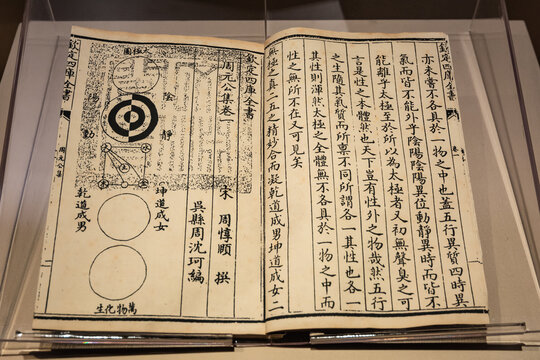 欽定四庫全書
卷一
亦未嘗不各具於一物之中也蓋五行異質四時異
氣而皆不能外乎陰陽陰陽異位動靜異時而皆不
能離乎太極至於所以為太極者又初無聲臭之可
言是性之本體然也天下豈有性外之物哉然五行
之生隨其氣質而所稟不同所謂各一其性也各一
其性則渾然太極之全體無不各具於一物之中而
性之無所不在又可見矣
無極之真二五之精妙合而凝乾道成男坤道成女二
欽定四庫全書
周元公集卷
宋 周惇頤 撰
吳縣周沈珂編
太極圖
陰靜
陽動
火
水
土
木
金
坤道成女
乾道成男
萬物化生
欽定四庫全書
周元公集